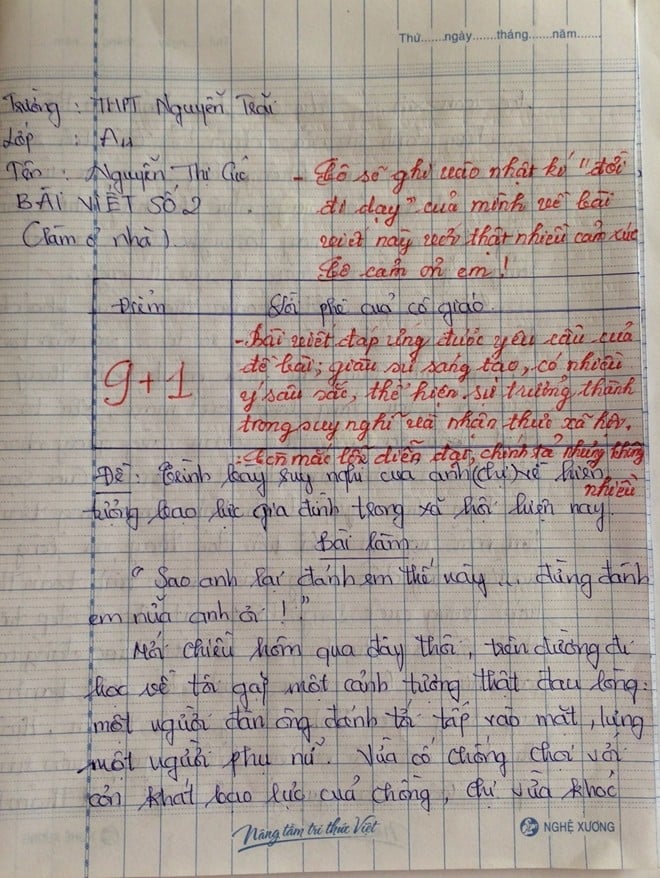 Thứ.......ngày.......tháng.......năm.......
Trường : THPT Nguyễn Trãi
Lớp : A4
Tên : Nguyễn Thị Cúc
BÀI VIẾT SỐ 2
(Làm ở nhà)
- Cô sẽ ghi vào nhật kí "đời
đi dạy" của mình về bài
viết này với thật nhiều cảm xúc
Cô cảm ơn em!
Điểm
Lời phê của cô giáo
9+1
- Bài viết đáp ứng được yêu cầu của
đề bài; giàu sự sáng tạo, có nhiều
ý sâu sắc, thể hiện sự trưởng thành
trong suy nghĩ và nhận thức xã hội.
- Còn mắc lỗi diễn đạt, chính tả nhưng không
nhiều
Đề : Trình bày suy nghĩ của anh (chị) về hiện
tượng bạo lực gia đình trong xã hội hiện nay.
Bài làm
" Sao anh lại đánh em thế này ... đừng đánh
em nữa anh ơi ! "
Mới chiều hôm qua đây thôi, trên đường đi
học về tôi gặp một cảnh tượng thật đau lòng:
một người đàn ông đánh tới tấp vào mặt, lưng
một người phụ nữ. Vừa cố chống chọi với
cơn khát bạo lực của chồng, chị vừa khóc
Nâng tầm tri thức Việt
NGHỆ XƯƠNG